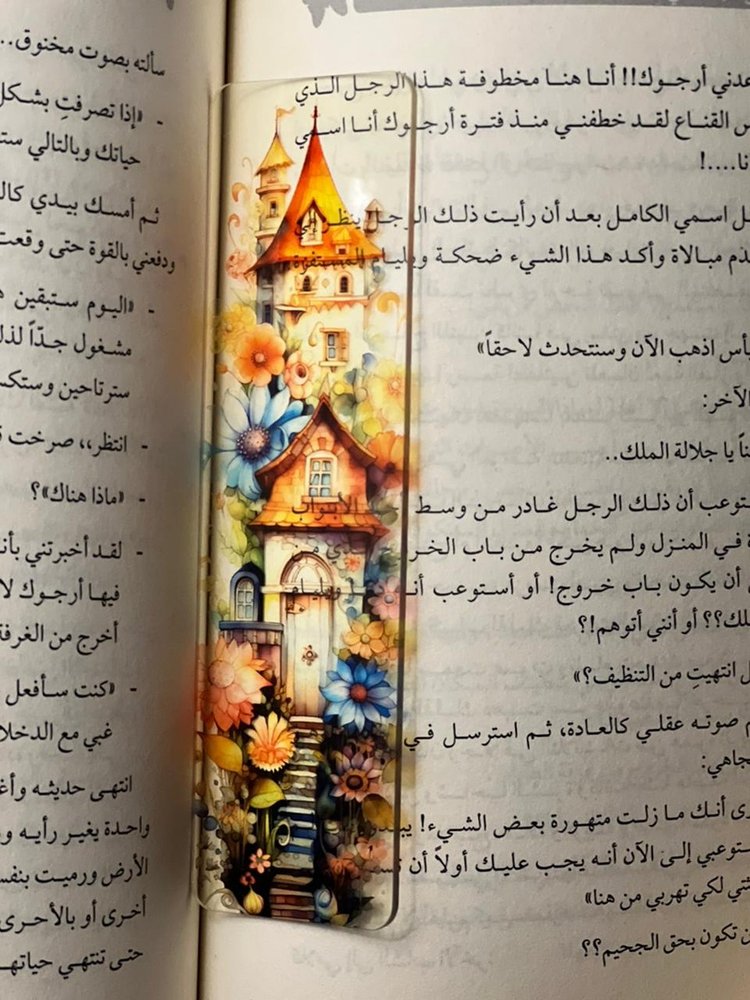 عدني أرجوك!! أنا هنا مخطوفة هذا الرجل الذي
القناع لقد خطفني منذ فترة أرجوك أنا اسمي
نا....!
اسمي الكامل بعد أن رأيت ذلك الرجل ينظر إلي
مبالاة وأكد هذا الشيء ضحكة المستفزة
بأس اذهب الآن وسنتحدث لاحقاً»
الآخر:
يا جلالة الملك..
ستوعب أن ذلك الرجل غادر من وسط الأبواب
في المنزل ولم يخرج من باب
أن يكون باب خروج! أو أستوعب
لك؟؟ أو أنني أتوهم!؟
انتهيتِ من التنظيف؟»
صوته عقلي كالعادة، ثم استرسل في
جاهي:
أنك ما زلت متهورة بعض الشيء!
ستوعبي إلى الآن أنه يجب عليك أولاً أن
لكي تهربي من هنا»
تكون بحق الجحيم؟؟
سألته بصوت مخنوق..
- «إذا تصرفتِ بشكل
حياتك وبالتالي
ثم أمسك بيدي
ودفعني بالقوة حتى وقعت
- «اليوم ستبقين
مشغول جدّاً
سترتاحين
- انتظر،، صرخت
- «ماذا هناك»؟
- لقد أخبرتني
فيها أرجوك
أخرج من الغرفة
- «كنت سأفعل
غبي مع
انتهى حديثه
واحدة يغير رأيه
الأرض ورميت
أخرى أو بالأحرى
حتى تنتهي